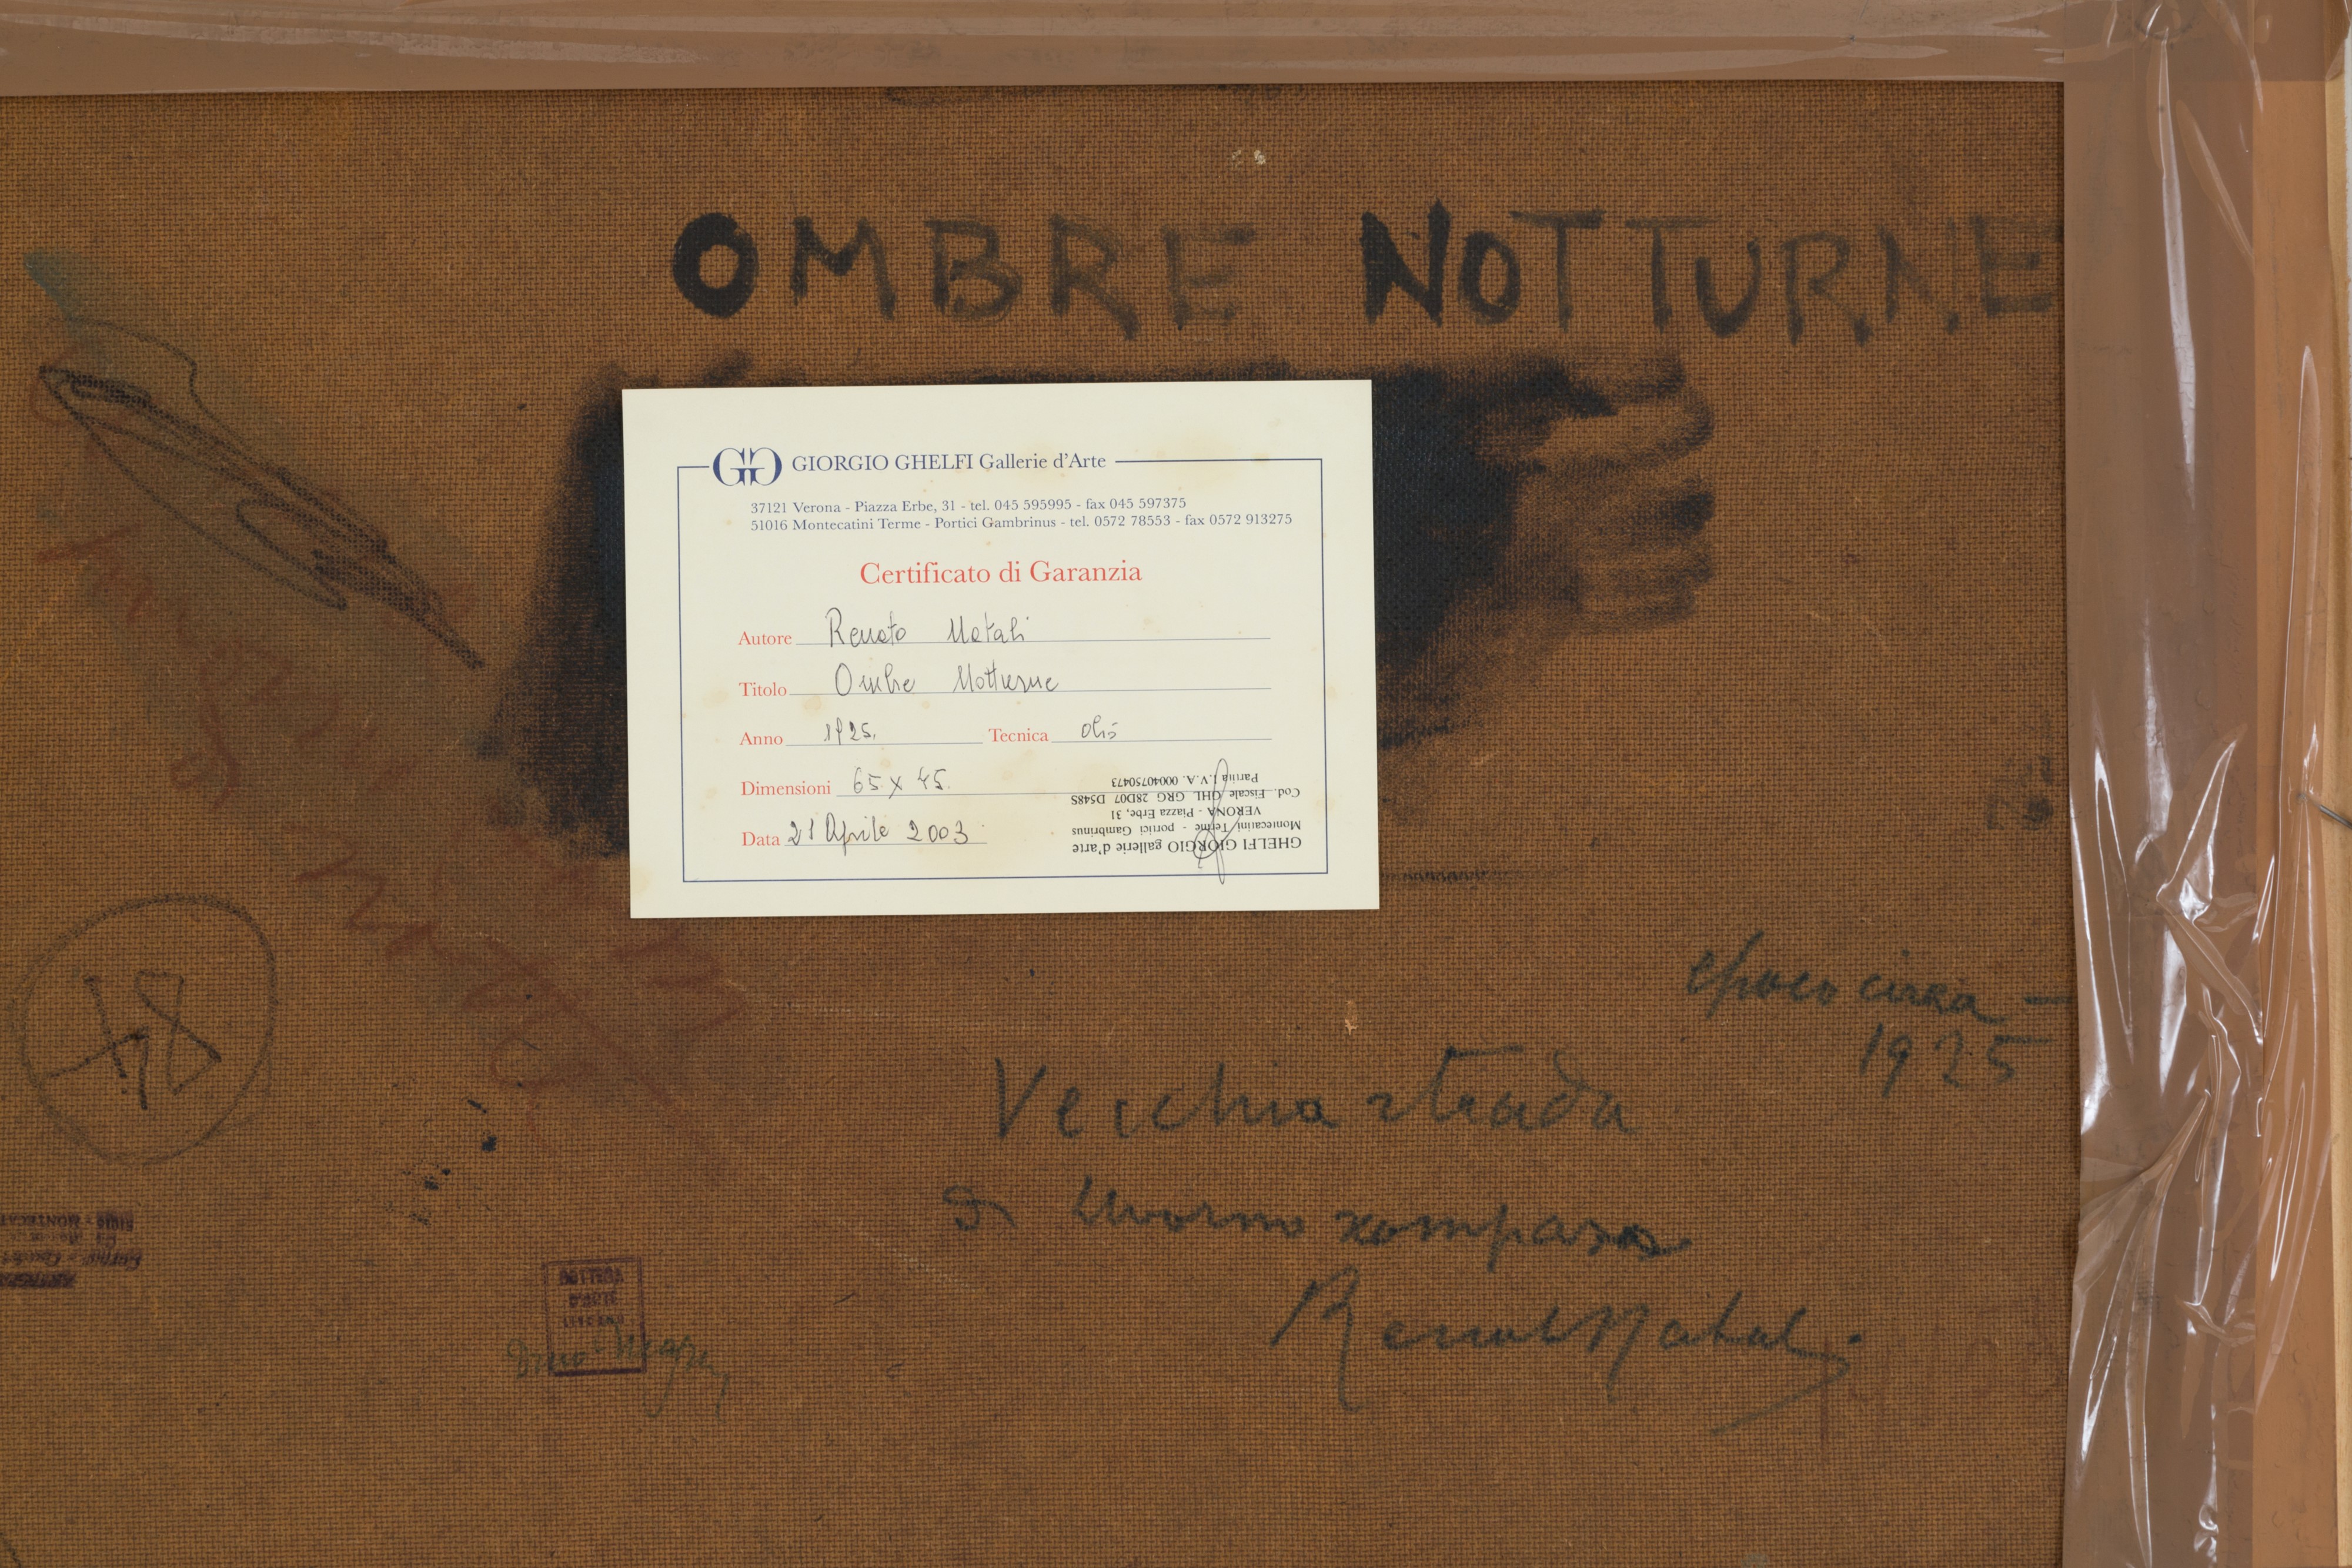 OMBRE NOTTURNE
GIORGIO GHELFI Gallerie d'Arte
37121 Verona - Piazza Erbe, 31 - tel. 045 595995 - fax 045 597375
51016 Montecatini Terme - Portici Gambrinus - tel. 0572 78553 - fax 0572 913275
Certificato di Garanzia
Autore Renato Natali
Titolo Ombre Notturne
Anno 1925. Tecnica olio
Dimensioni 65 x 45
Data 21 Aprile 2003
GHELFI GIORGIO gallerie d'arte
Montecatini Terme - portici Gambrinus
VERONA - Piazza Erbe, 31
Cod. Fiscale GHL GRG 28D07 D548S
Partita I.V.A. 00040750473
epoca circa -
1925
Vecchia strada
di Livorno scomparsa
Renato Natali
84
BOTTEGA